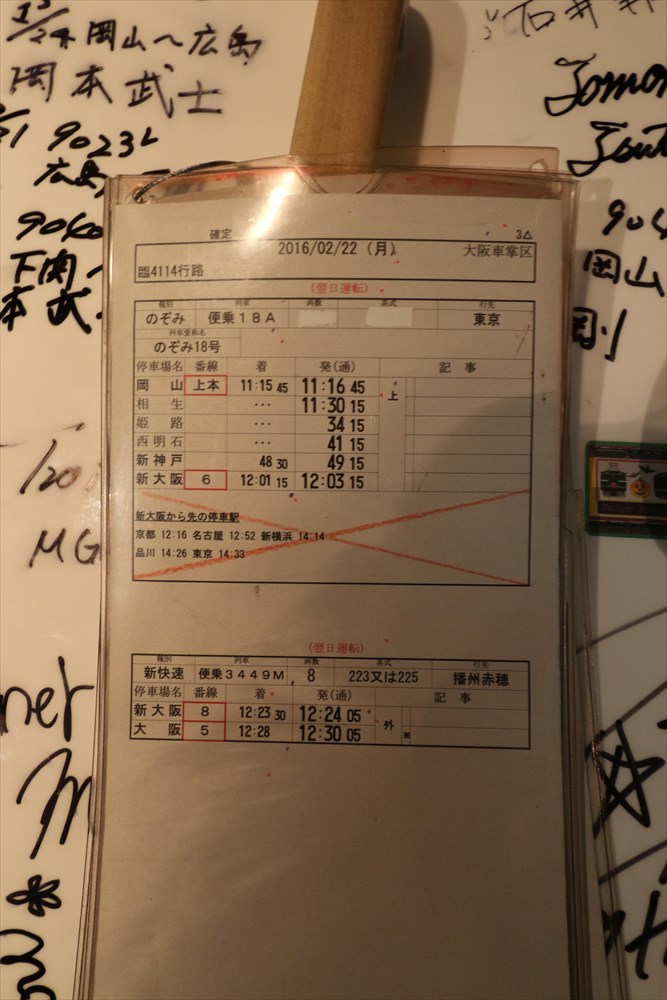 12/24 岡山～広島
岡本武士
9023L
広島
9040
下関～
本武
904
岡山
剛
1/20
MG
石井
確定
3△
2016/02/22 (月)
大阪車掌区
臨4114行路
(翌日運転)
種別 列車 両数 形式 行先
のぞみ 便乗18A 東京
列車愛称名
のぞみ18号
停車場名 番線 着 発(通) 記事
岡山 上本 11:15 45 11:16 45 上
相生 ・・・ 11:30 15
姫路 ・・・ 34 15
西明石 ・・・ 41 15
新神戸 48 30 49 15
新大阪 6 12:01 15 12:03 15
新大阪から先の停車駅
京都 12:16 名古屋 12:52 新横浜 14:14
品川 14:26 東京 14:33
(翌日運転)
種別 列車 両数 形式 行先
新快速 便乗3449M 8 223又は225 播州赤穂
停車場名 番線 着 発(通) 記事
新大阪 8 12:23 30 12:24 05 外
大阪 5 12:28 12:30 05